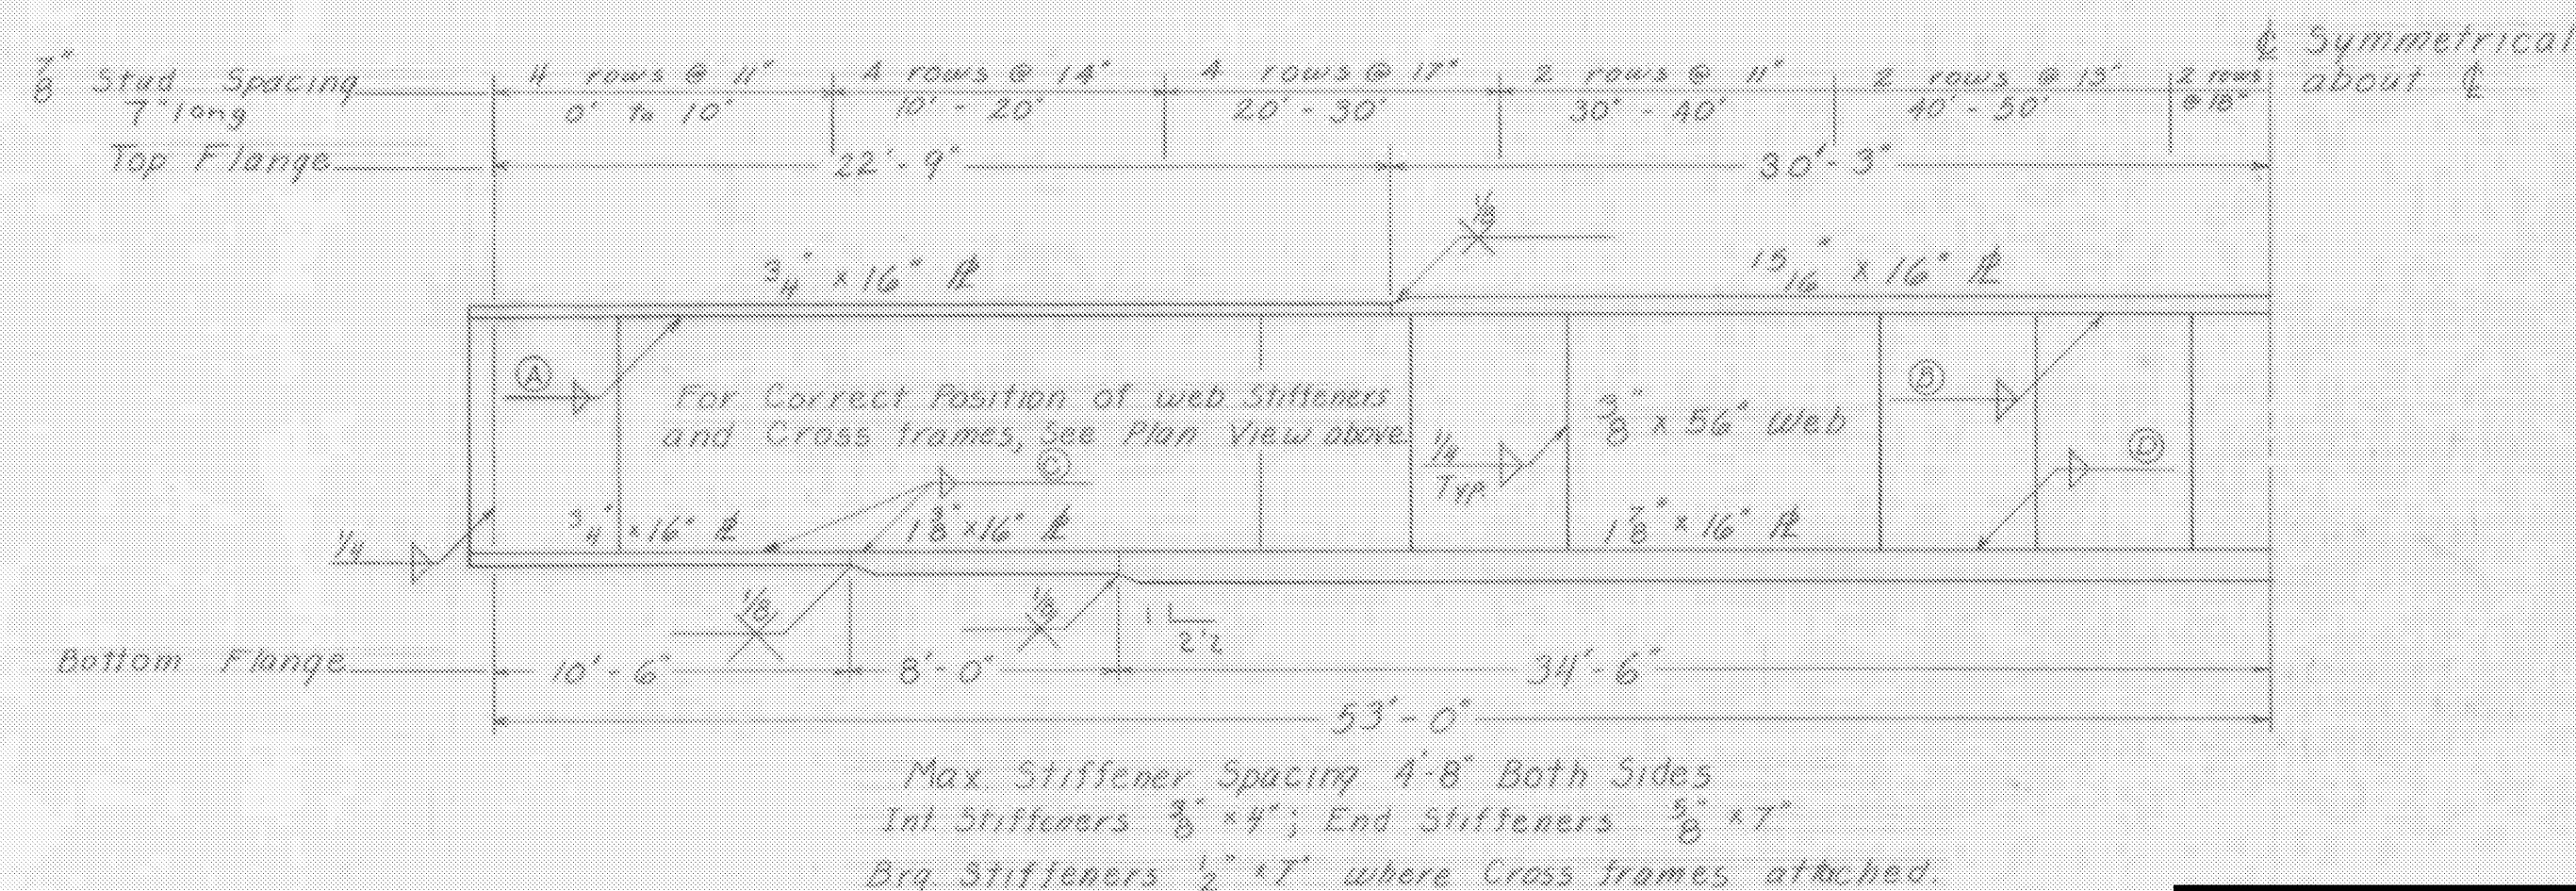 7/8" Stud Spacing
7" long
4 rows @ 11"
0' to 10'
4 rows @ 14"
10' - 20'
4 rows @ 17"
20' - 30'
2 rows @ 11"
30" - 40'
2 rows @ 15"
40' - 50'
2 rows
@ 18"
℄ Symmetrical
about ℄
Top Flange
22'- 9"
30'- 3"
1/8
3/4" x 16" ℞
15/16" x 16" ℞
A
For Correct Position of web Stiffeners
and Cross frames, See Plan View above
C
1/4
Typ.
3/8" x 56" Web
B
D
1/4
3/4" x 16" ℞
1 3/8" x 16" ℞
1 7/8" x 16" ℞
1/8
1/8
1
2 1/2
Bottom Flange
10'- 6"
8'- 0"
34'- 6"
53'- 0"
Max. Stiffener Spacing 4'-8" Both Sides
Int. Stiffeners 3/8" x 4"; End Stiffeners 5/8" x 7"
Brg. Stiffeners 1/2" x 7" where Cross frames attached.